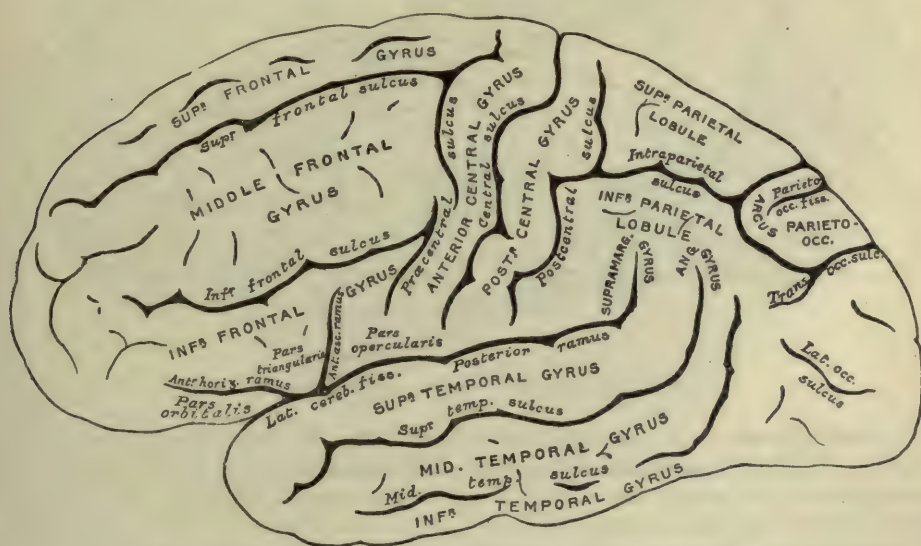 SUPR FRONTAL GYRUS
Supr frontal sulcus
MIDDLE FRONTAL
GYRUS
Infr frontal sulcus
INFR FRONTAL
GYRUS
Pars
triangularis
Ant. asc. ramus
Pars
opercularis
Ant. horiz. ramus
Pars
orbitalis
Præcentral sulcus
ANTERIOR CENTRAL GYRUS
Central sulcus
POSTR CENTRAL GYRUS
Postcentral sulcus
SUPR PARIETAL
LOBULE
Intraparietal
sulcus
INFR PARIETAL
LOBULE
SUPRAMARG.
GYRUS
ANG
GYRUS
ARCUS
Parieto
occ. fiss.
PARIETO-
OCC.
Trans occ. sulc.
Lat. occ.
sulcus
Lat. cereb. fiss. Posterior ramus
SUPR TEMPORAL GYRUS
Supr temp. sulcus
MID. TEMPORAL GYRUS
Mid. temp. sulcus
INFR TEMPORAL GYRUS